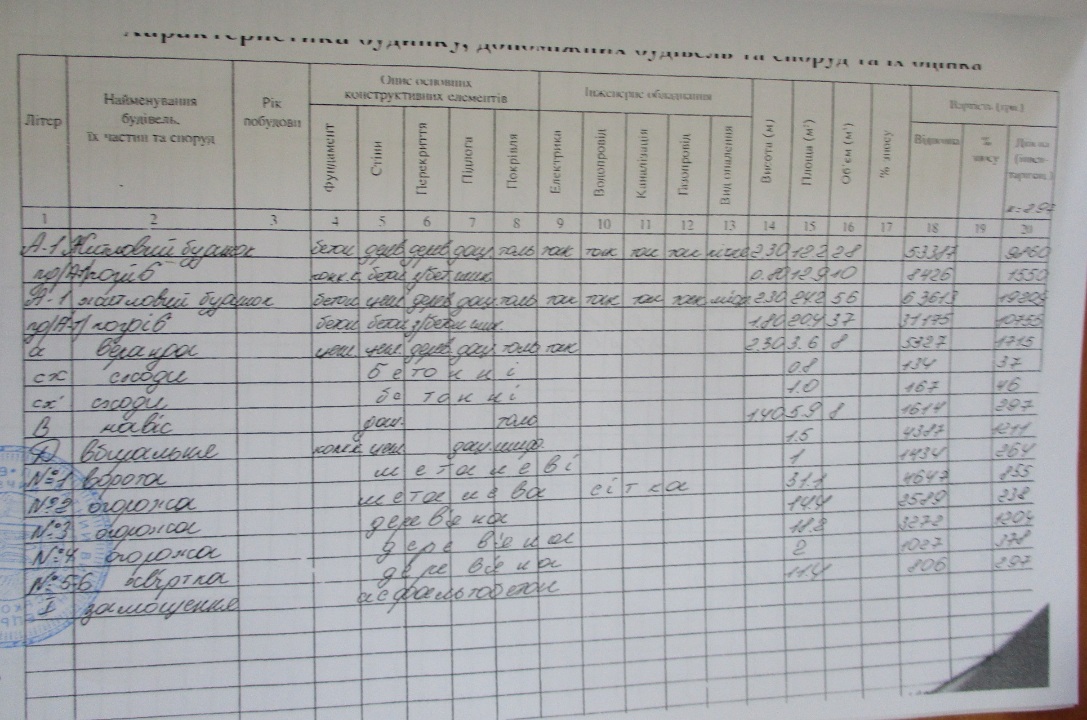 Характеристика будинку, допоміжних будівель та споруд та їх оцінка
Літер Найменування будівель, їх частин та споруд Рік побудови Опис основних конструктивних елементів Інженерне обладнання Висота (м) Площа (м²) Об'єм (м³) % зносу Вартість (грн.)
Фундамент Стіни Перекриття Підлоги Покрівля Електрика Водопровід Каналізація Газопровід Вид опалення Відновна % зносу
1 2 3 4 5 6 7 8 9 10 11 12 13 14 15 16 17 18 19 20
А-1 Житловий будинок бетон дерев дерев дощ толь так так так так 2.30 12.2 28 53387
под/А-1 погріб бетон з/бет цем. 0.80 12.9 10 8426 1550
А-1 житловий будинок бетон цегл дерев дощ толь так так так так 2.30 24.2 56
под/А-1/ погріб бетон бетон з/бетон цем. 1.80 20.4 37 31175 10755
а веранда цегл цегл дерев дощ толь так 2.30 3.6 8 5327 1715
сх сходи бетонні 0.8 134 37
сх' сходи бетонні 1.0 167 46
В навіс дощ. толь 1.40 5.9 8 1614 297
Д вбиральня цегл дощ. шиф. 1.5 4387 1211
№1 ворота металеві 1 1434 264
№2 огорожа металева сітка 31.1 4647 855
№3 огорожа дерев'яна 14.4 2589 238
№4 огорожа дерев'яна 18.8 3272 1204
№5-6 хвіртка дерев'яна 2 1027 378
I замощення асфальтобетон 11.4 806 297